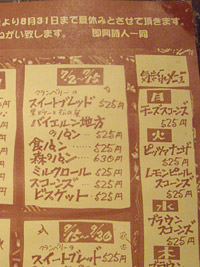 より8月31日まで夏休みとさせて頂きます。
がい致します。 即興詩人一同
9/2〜9/5
クランベリーの
スイートブレッド 525円
バイエルン地方
のパン 525円
食パン 525円
森のパン 630円
ミルクロール 525円
スコーンズ 525円
ビスケット 525円
9/5〜9/30
クランベリーの
スイートブレッド 525円
月
チーズスコーンズ
525円
火
525円
レモンピール
スコーンズ
525円
水
ブラウン
スコーンズ
525円
木